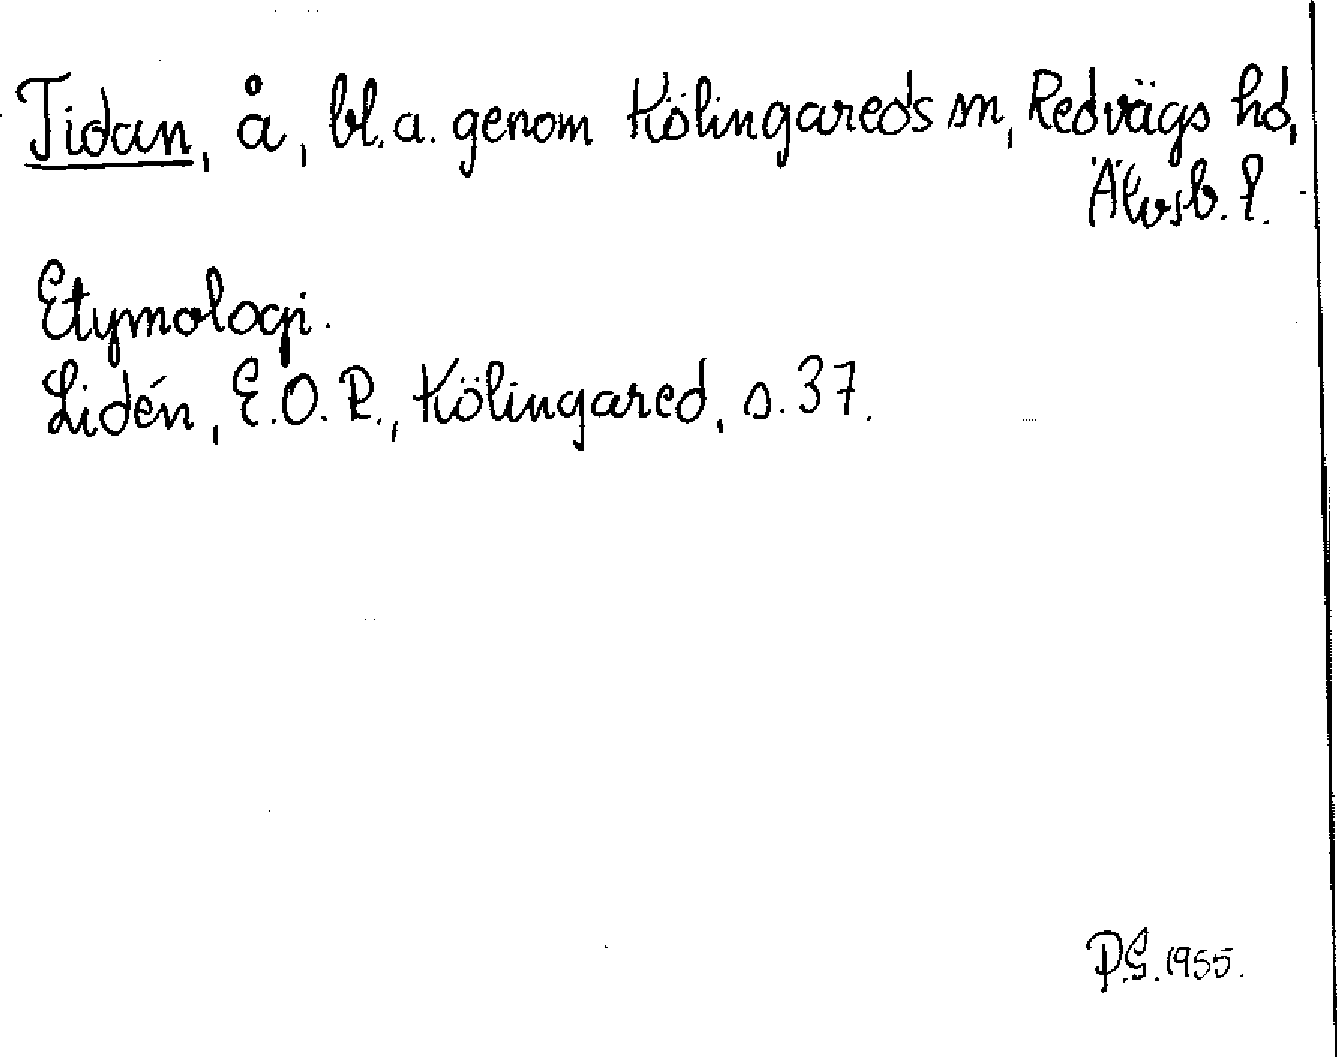 Tidan, å, bl.a. genom Kölingareds sn, Redvägs hd,
Älvsb. l.
Etymologi.
Lidén, E.O.R., Kölingared, s. 37.
P.G. 1955.